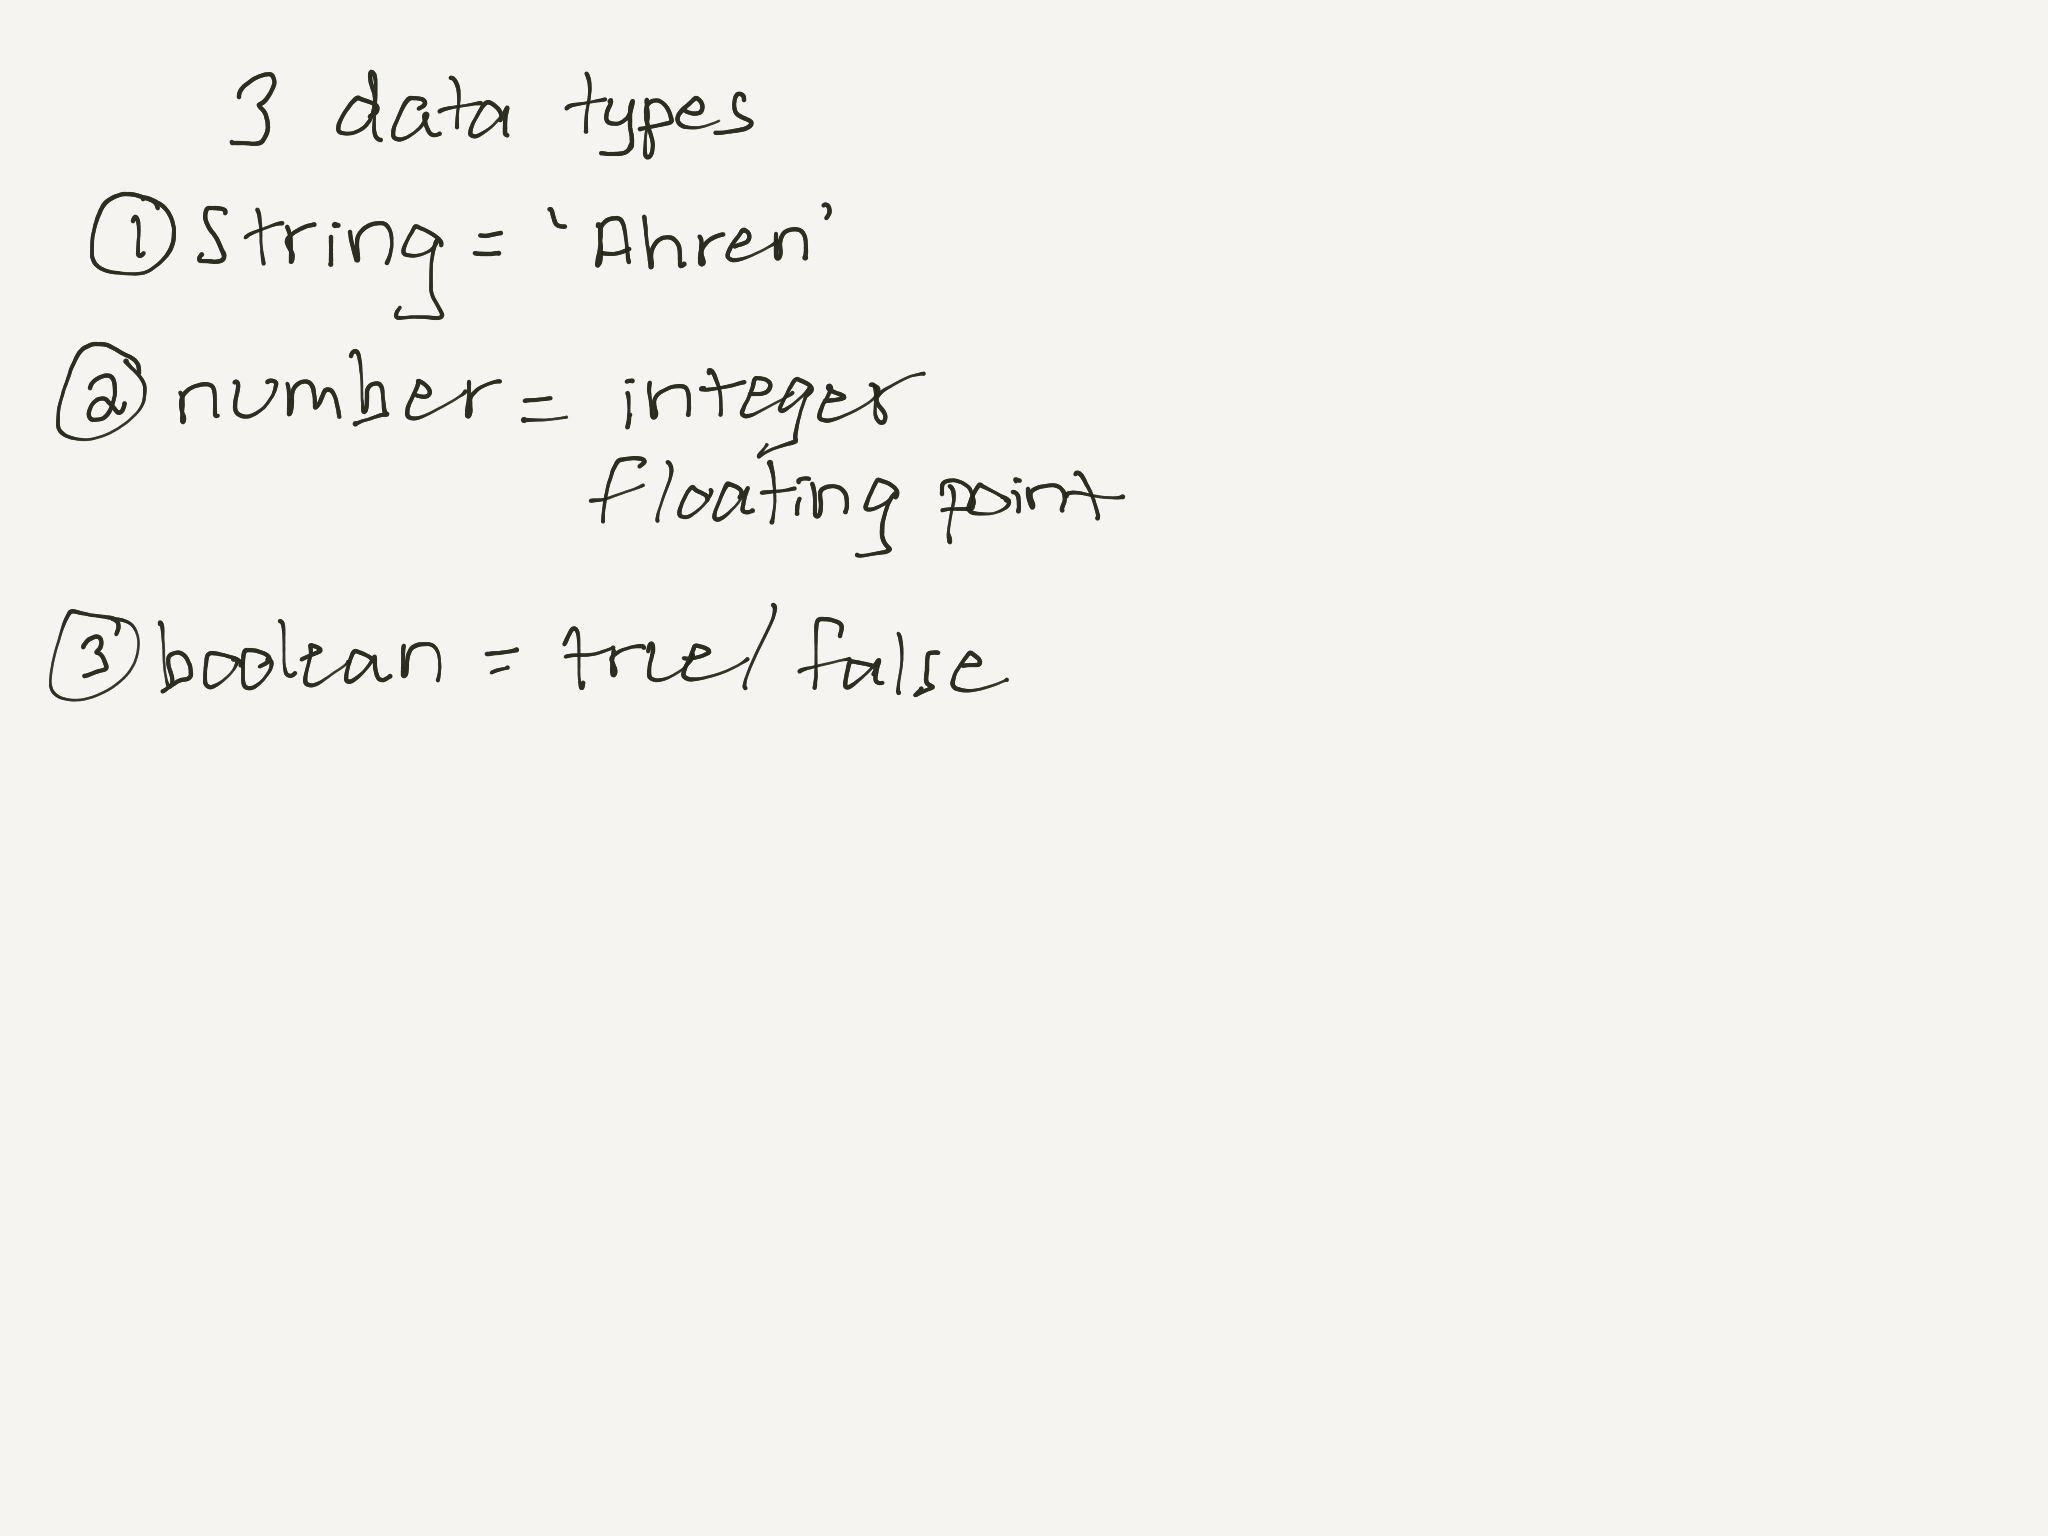 3 data types
① String = 'Ahren'
② number = integer
floating point
③ boolean = true/false